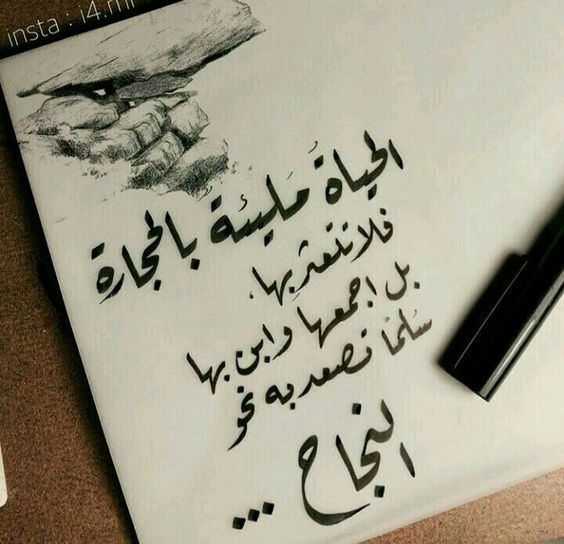 insta : i4.m
الحياةُ مَليئة بالحجارة
فلا تتعثر بها،
بل اجمعها وابن بها
سُلمًا تصعد به نحو
النجاح ...